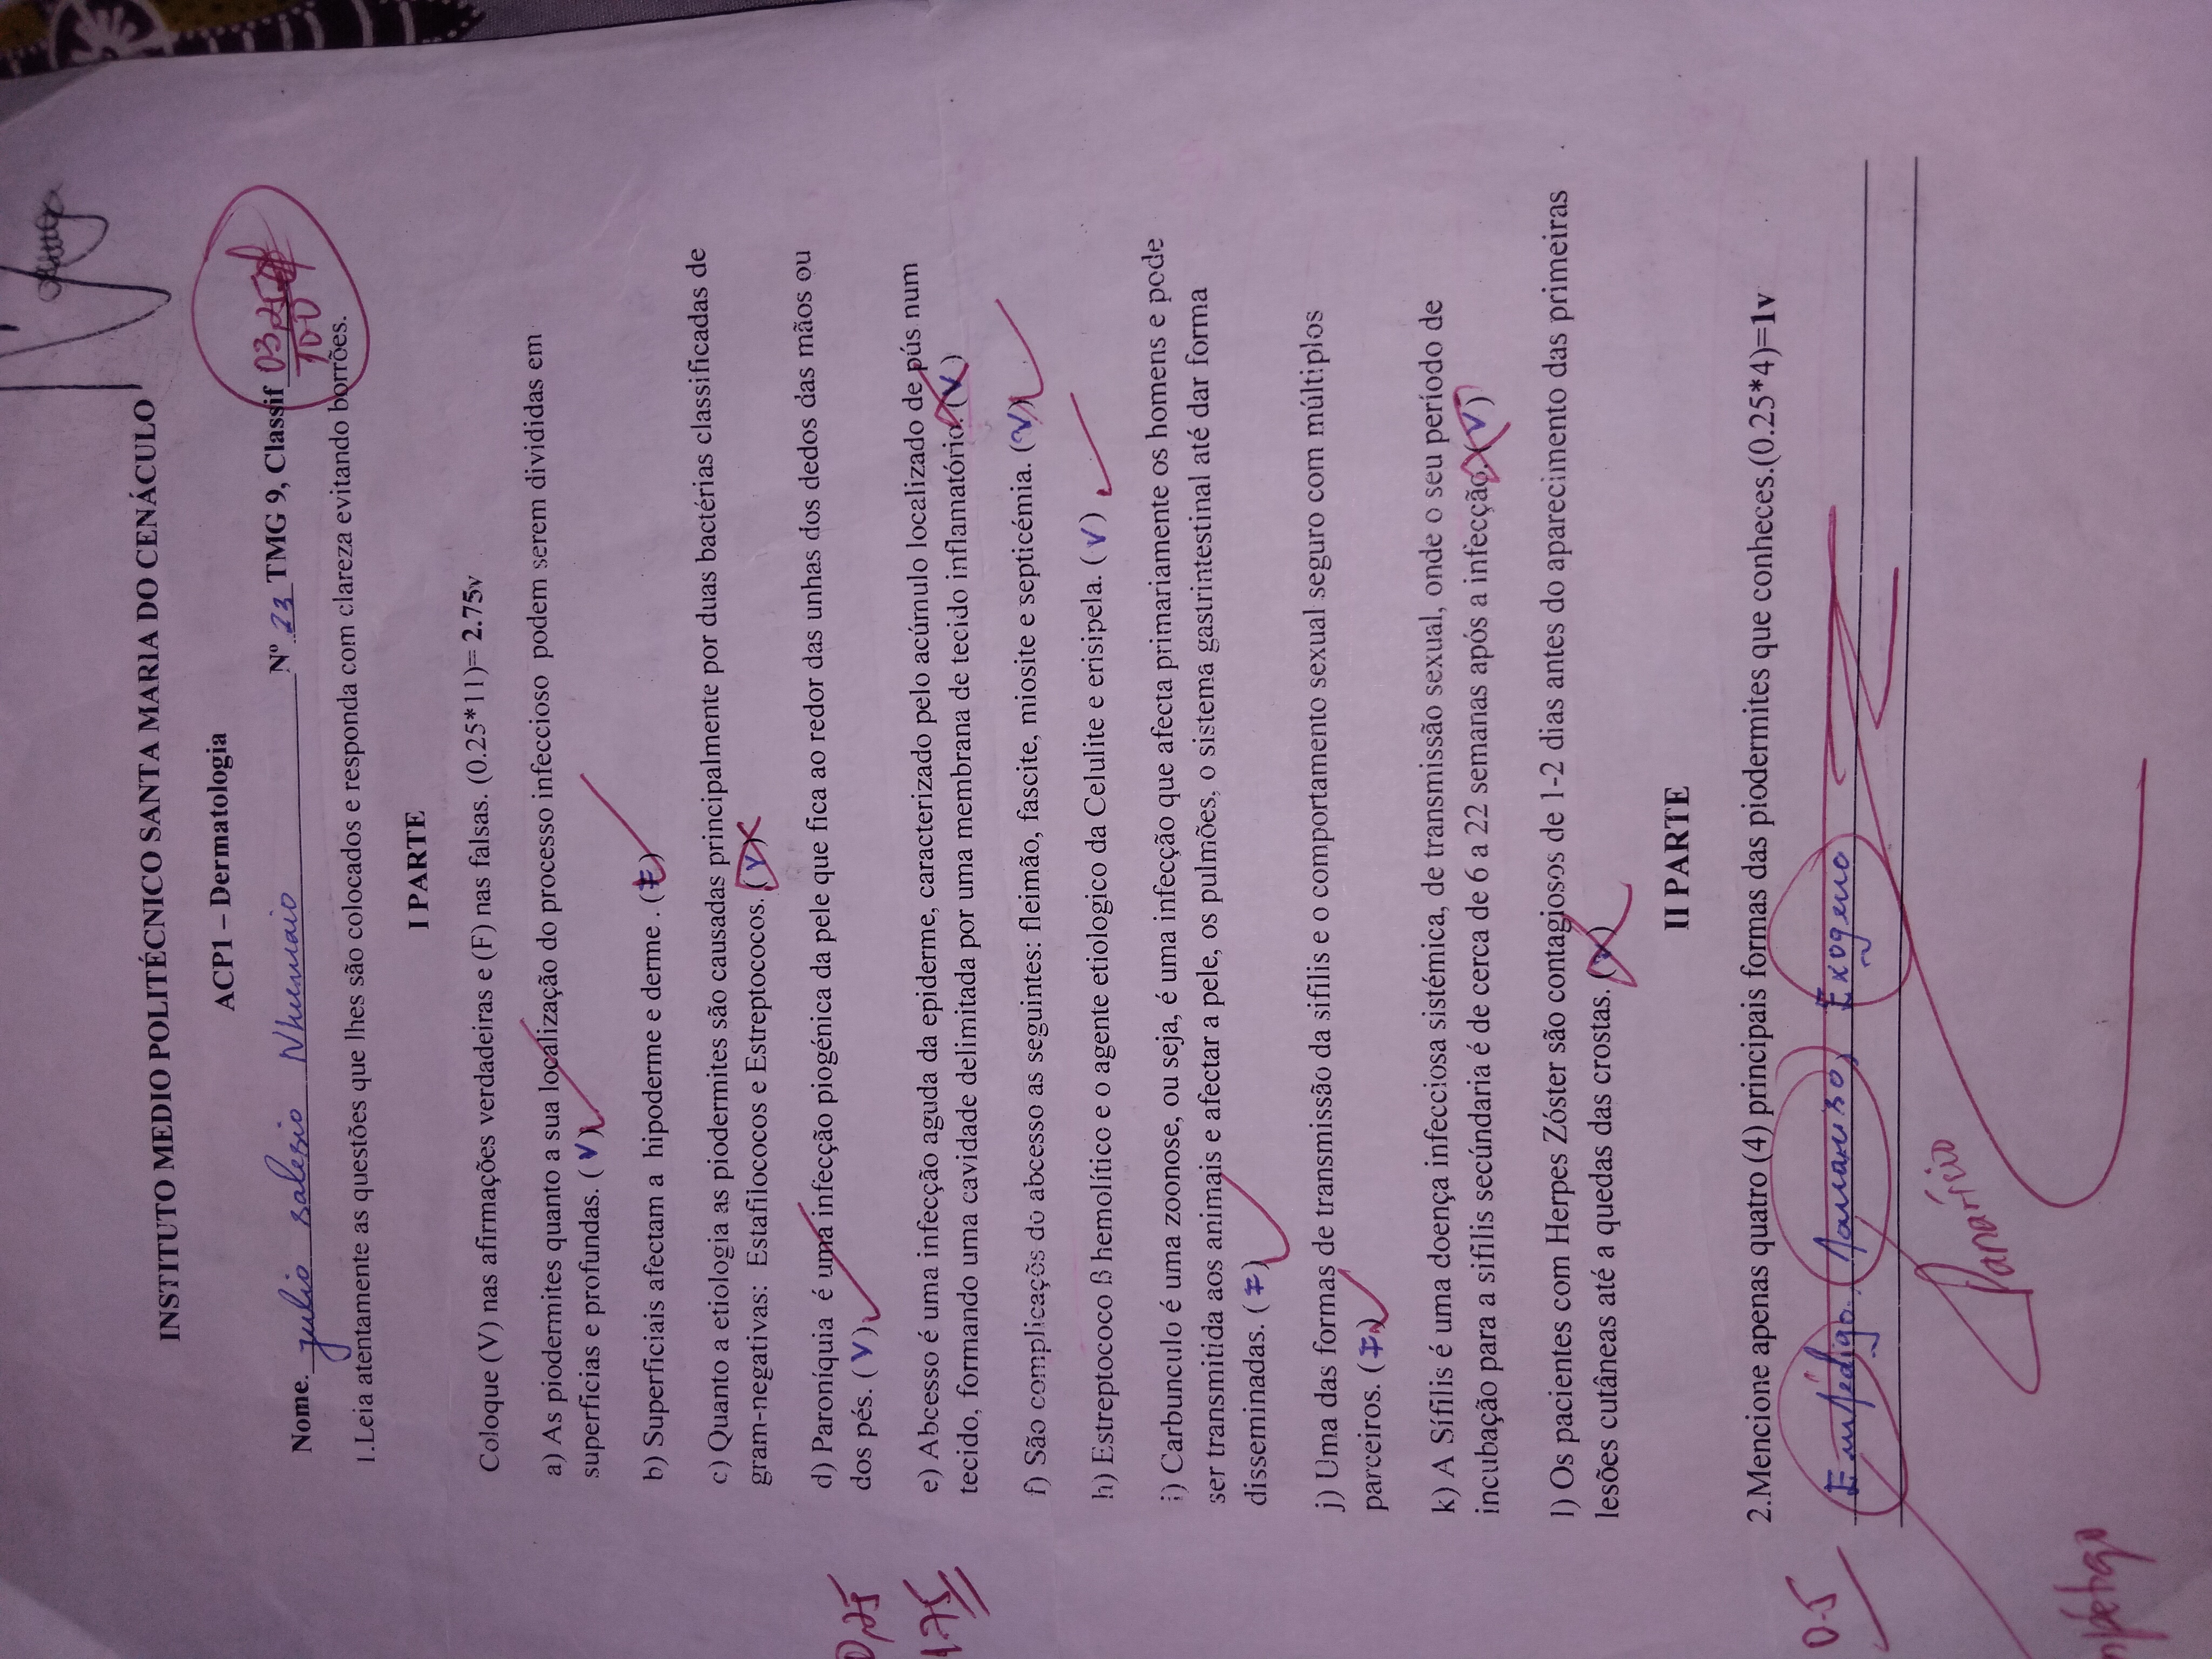 INSTITUTO MEDIO POLITÉCNICO SANTA MARIA DO CENÁCULO
ACP1 – Dermatologia
Nome. julio salesio Nhumaio Nº 23 TMG 9, Classif 03,25
100
1.Leia atentamente as questões que lhes são colocados e responda com clareza evitando borrões.
I PARTE
Coloque (V) nas afirmações verdadeiras e (F) nas falsas. (0.25*11)= 2.75v
a) As piodermites quanto a sua localização do processo infeccioso podem serem divididas em
superficias e profundas. ( V )
b) Superficiais afectam a hipoderme e derme . (F)
c) Quanto a etiologia as piodermites são causadas principalmente por duas bactérias classificadas de
gram-negativas: Estafilococos e Estreptococos. ( V )
d) Paroníquia é uma infecção piogénica da pele que fica ao redor das unhas dos dedos das mãos ou
0,25
dos pés. ( V )
e) Abcesso é uma infecção aguda da epiderme, caracterizado pelo acúmulo localizado de pús num
1.75
tecido, formando uma cavidade delimitada por uma membrana de tecido inflamatório. ( V )
f) São complicaçõs do abcesso as seguintes: fleimão, fascite, miosite e septicémia. ( V )
h) Estreptococo ß hemolítico e o agente etiologico da Celulite e erisipela. ( V )
i) Carbunculo é uma zoonose, ou seja, é uma infecção que afecta primariamente os homens e pode
ser transmitida aos animais e afectar a pele, os pulmões, o sistema gastrintestinal até dar forma
disseminadas. ( F )
j) Uma das formas de transmissão da sifilis e o comportamento sexual seguro com múltiplos
parceiros. ( F )
k) A Sífilis é uma doença infecciosa sistémica, de transmissão sexual, onde o seu período de
incubação para a sifilis secúndaria é de cerca de 6 a 22 semanas após a infecção. ( V )
l) Os pacientes com Herpes Zóster são contagiosos de 1-2 dias antes do aparecimento das primeiras
lesões cutâneas até a quedas das crostas. ( V )
II PARTE
2.Mencione apenas quatro (4) principais formas das piodermites que conheces.(0.25*4)=1v
0.5
Empédigo, Exogeno
Panarício
mpétigo